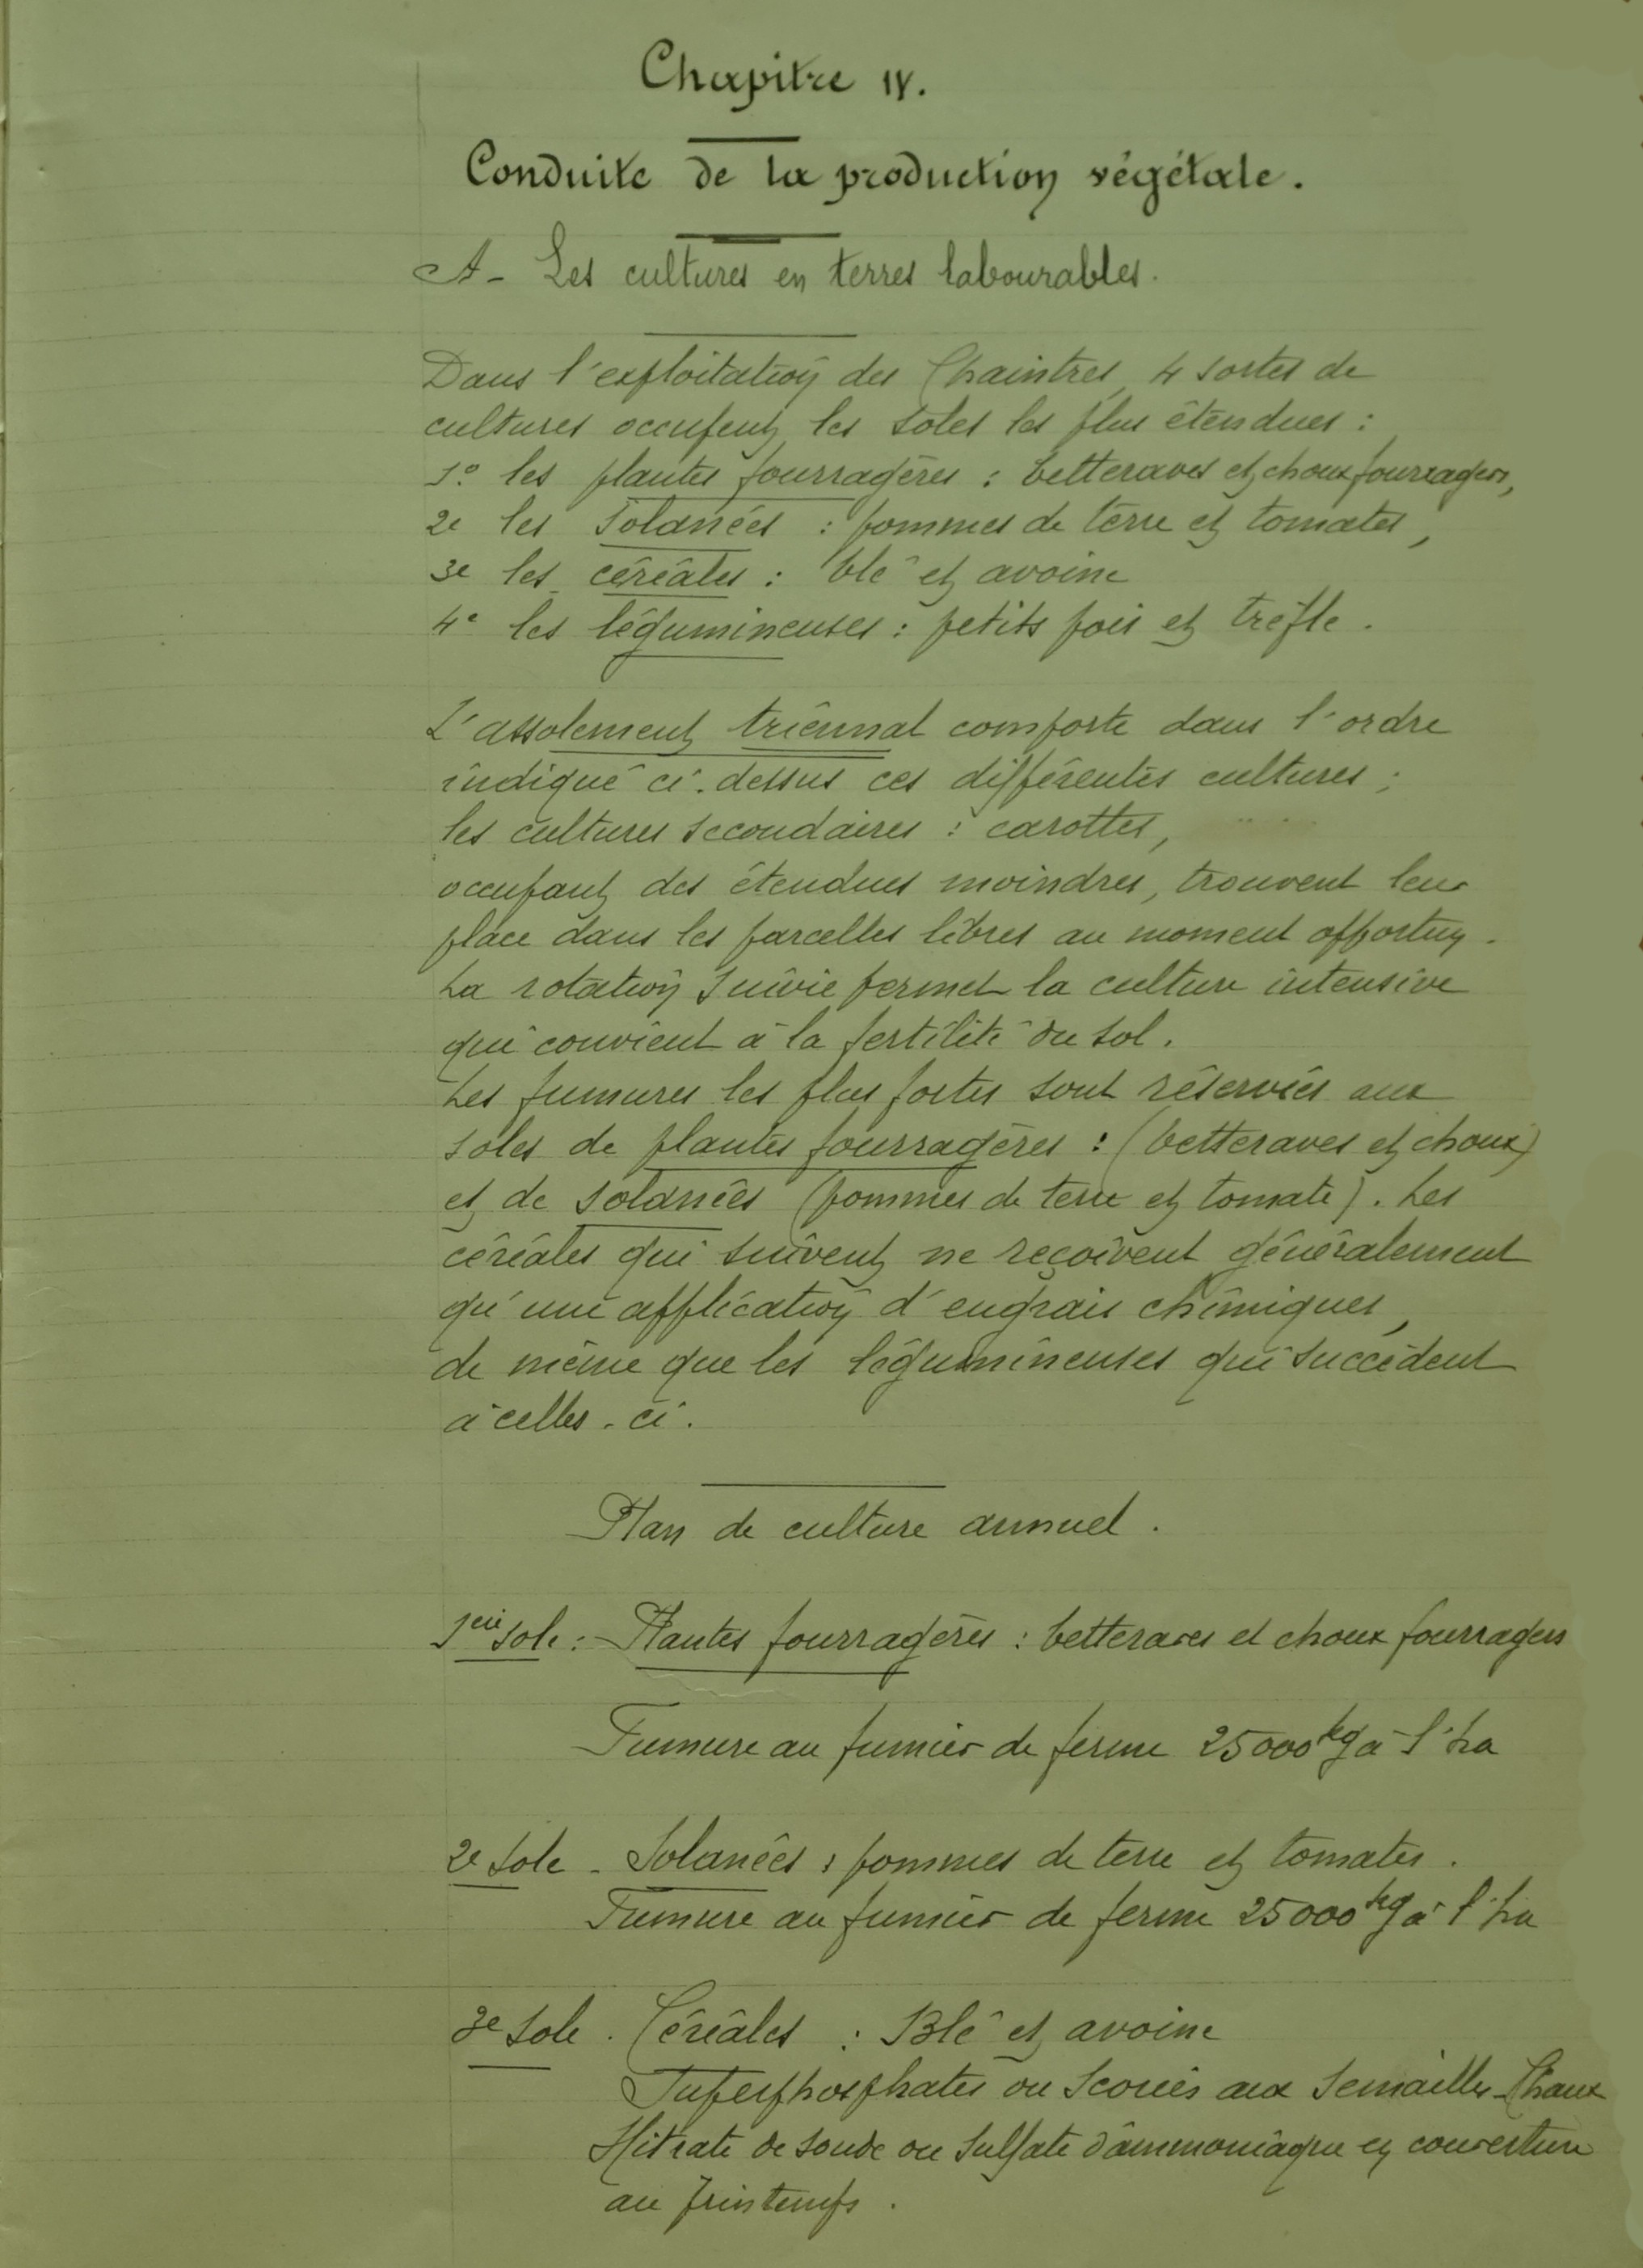 Chapitre IV.
Conduite de la production végétale.
A - Les cultures en terres labourables.
Dans l'exploitation des Chaintres, 4 sortes de
cultures occupent les soles les plus étendues :
1º les plantes fourragères : betteraves et choux fourragers,
2e les Solanées : pommes de terre et tomates,
3e les céréales : blé et avoine
4e les légumineuses : petits pois et trèfle.
L'assolement triennal comporte dans l'ordre
indiqué ci-dessus ces différentes cultures ;
les cultures secondaires : carottes,
occupant des étendues moindres, trouvent leur
place dans les parcelles libres au moment opportun.
La rotation suivie permet la culture intensive
qui convient à la fertilité du sol.
Les fumures les plus fortes sont réservées aux
soles de plantes fourragères : (betteraves et choux)
et de solanées (pommes de terre et tomate). Les
céréales qui suivent ne reçoivent généralement
qu'une application d'engrais chimiques,
de même que les légumineuses qui succèdent
à celles-ci.
Plan de culture annuel.
1ère sole : Plantes fourragères : betteraves et choux fourragers
Fumure au fumier de ferme 25000 kg à l'ha
2e sole - Solanées : pommes de terre et tomates.
Fumure au fumier de ferme 25000 kg à l'ha
3e sole . Céréales : Blé et avoine
Superphosphates ou Scories aux Semailles - Chaux
Nitrate de soude ou Sulfate d'ammoniaque en couverture
au printemps.